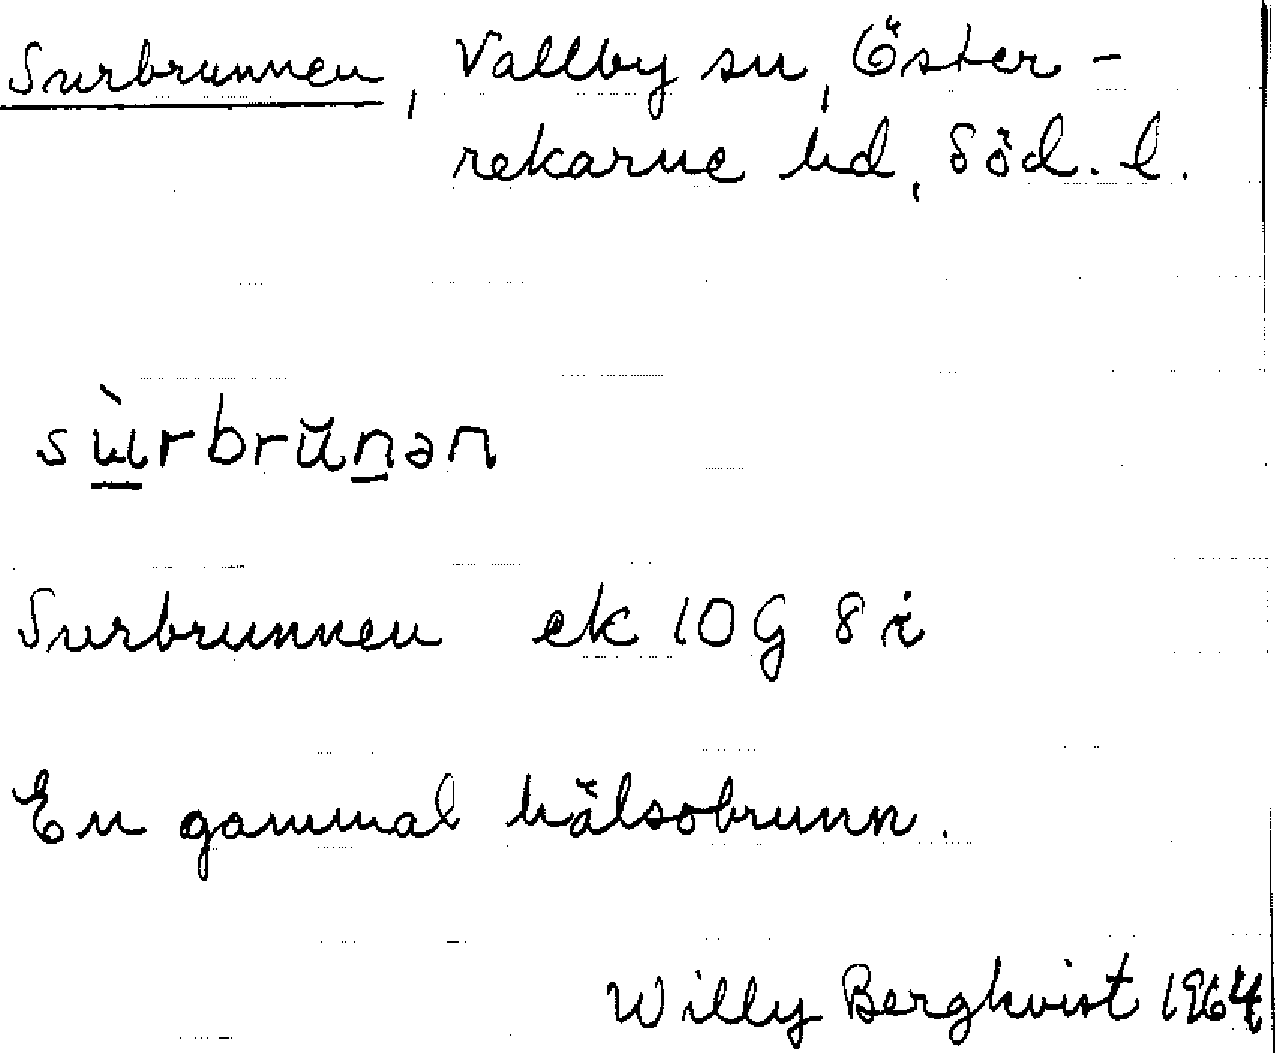 Surbrunnen, Vallby sn, Öster-
rekarne hd, Söd. l.
sù̱rbrŭṉən
Surbrunnen ek 10G 8i
En gammal hälsobrunn.
Willy Bergkvist 1964